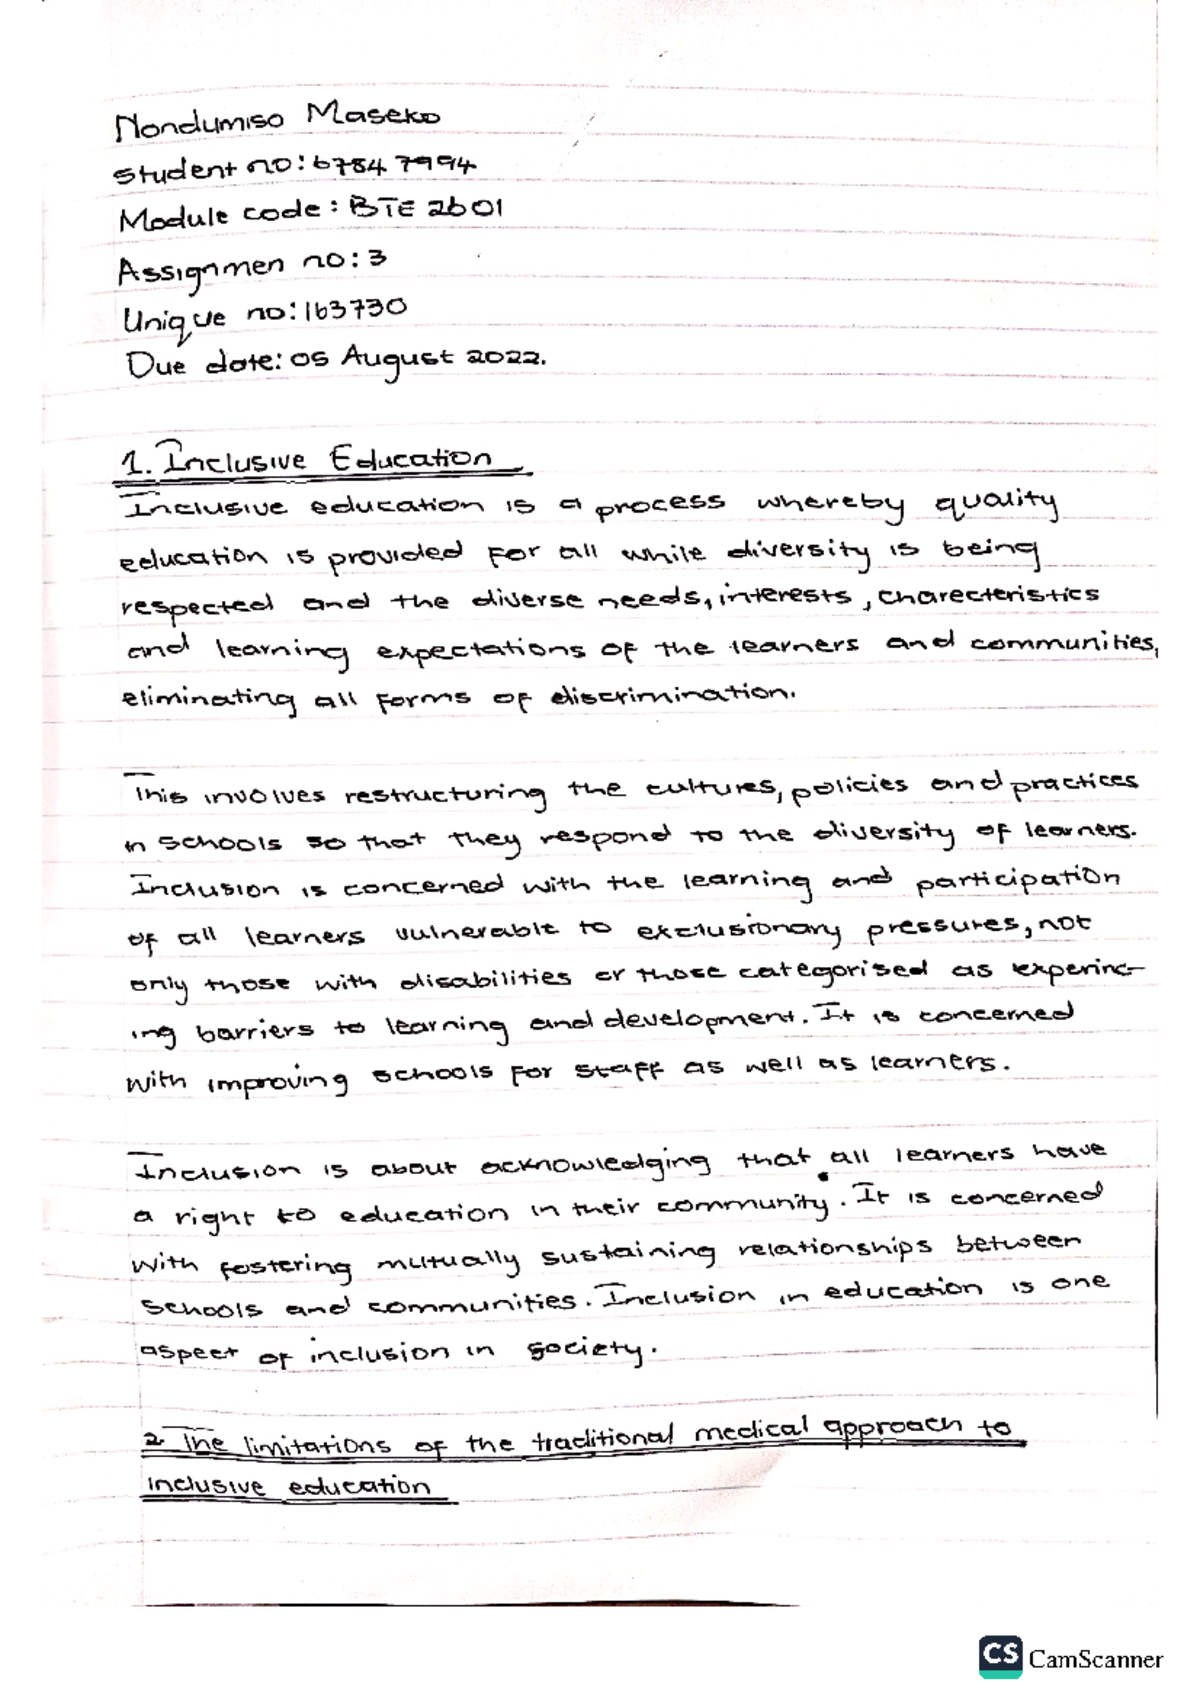 Nondumiso Maseko
Student no: 6784 7994
Module code: BTE 2601
Assignmen no: 3
Unique no: 163730
Due date: 05 August 2022.
1. Inclusive Education
Inclusive education is a process whereby quality
education is provided for all while diversity is being
respected and the diverse needs, interests, charecteristics
and learning expectations of the learners and communities,
eliminating all forms of discrimination.
This involves restructuring the cultures, policies and practices
in schools so that they respond to the diversity of learners.
Inclusion is concerned with the learning and participation
of all learners vulnerable to exclusionary pressures, not
only those with disabilities or those categorised as experinc-
ing barriers to learning and development. It is concerned
with improving schools for staff as well as learners.
Inclusion is about acknowledging that all learners have
a right to education in their community. It is concerned
with fostering mutually sustaining relationships between
schools and communities. Inclusion in education is one
aspect of inclusion in society.
2. The limitations of the traditional medical approach to
inclusive education
CS CamScanner